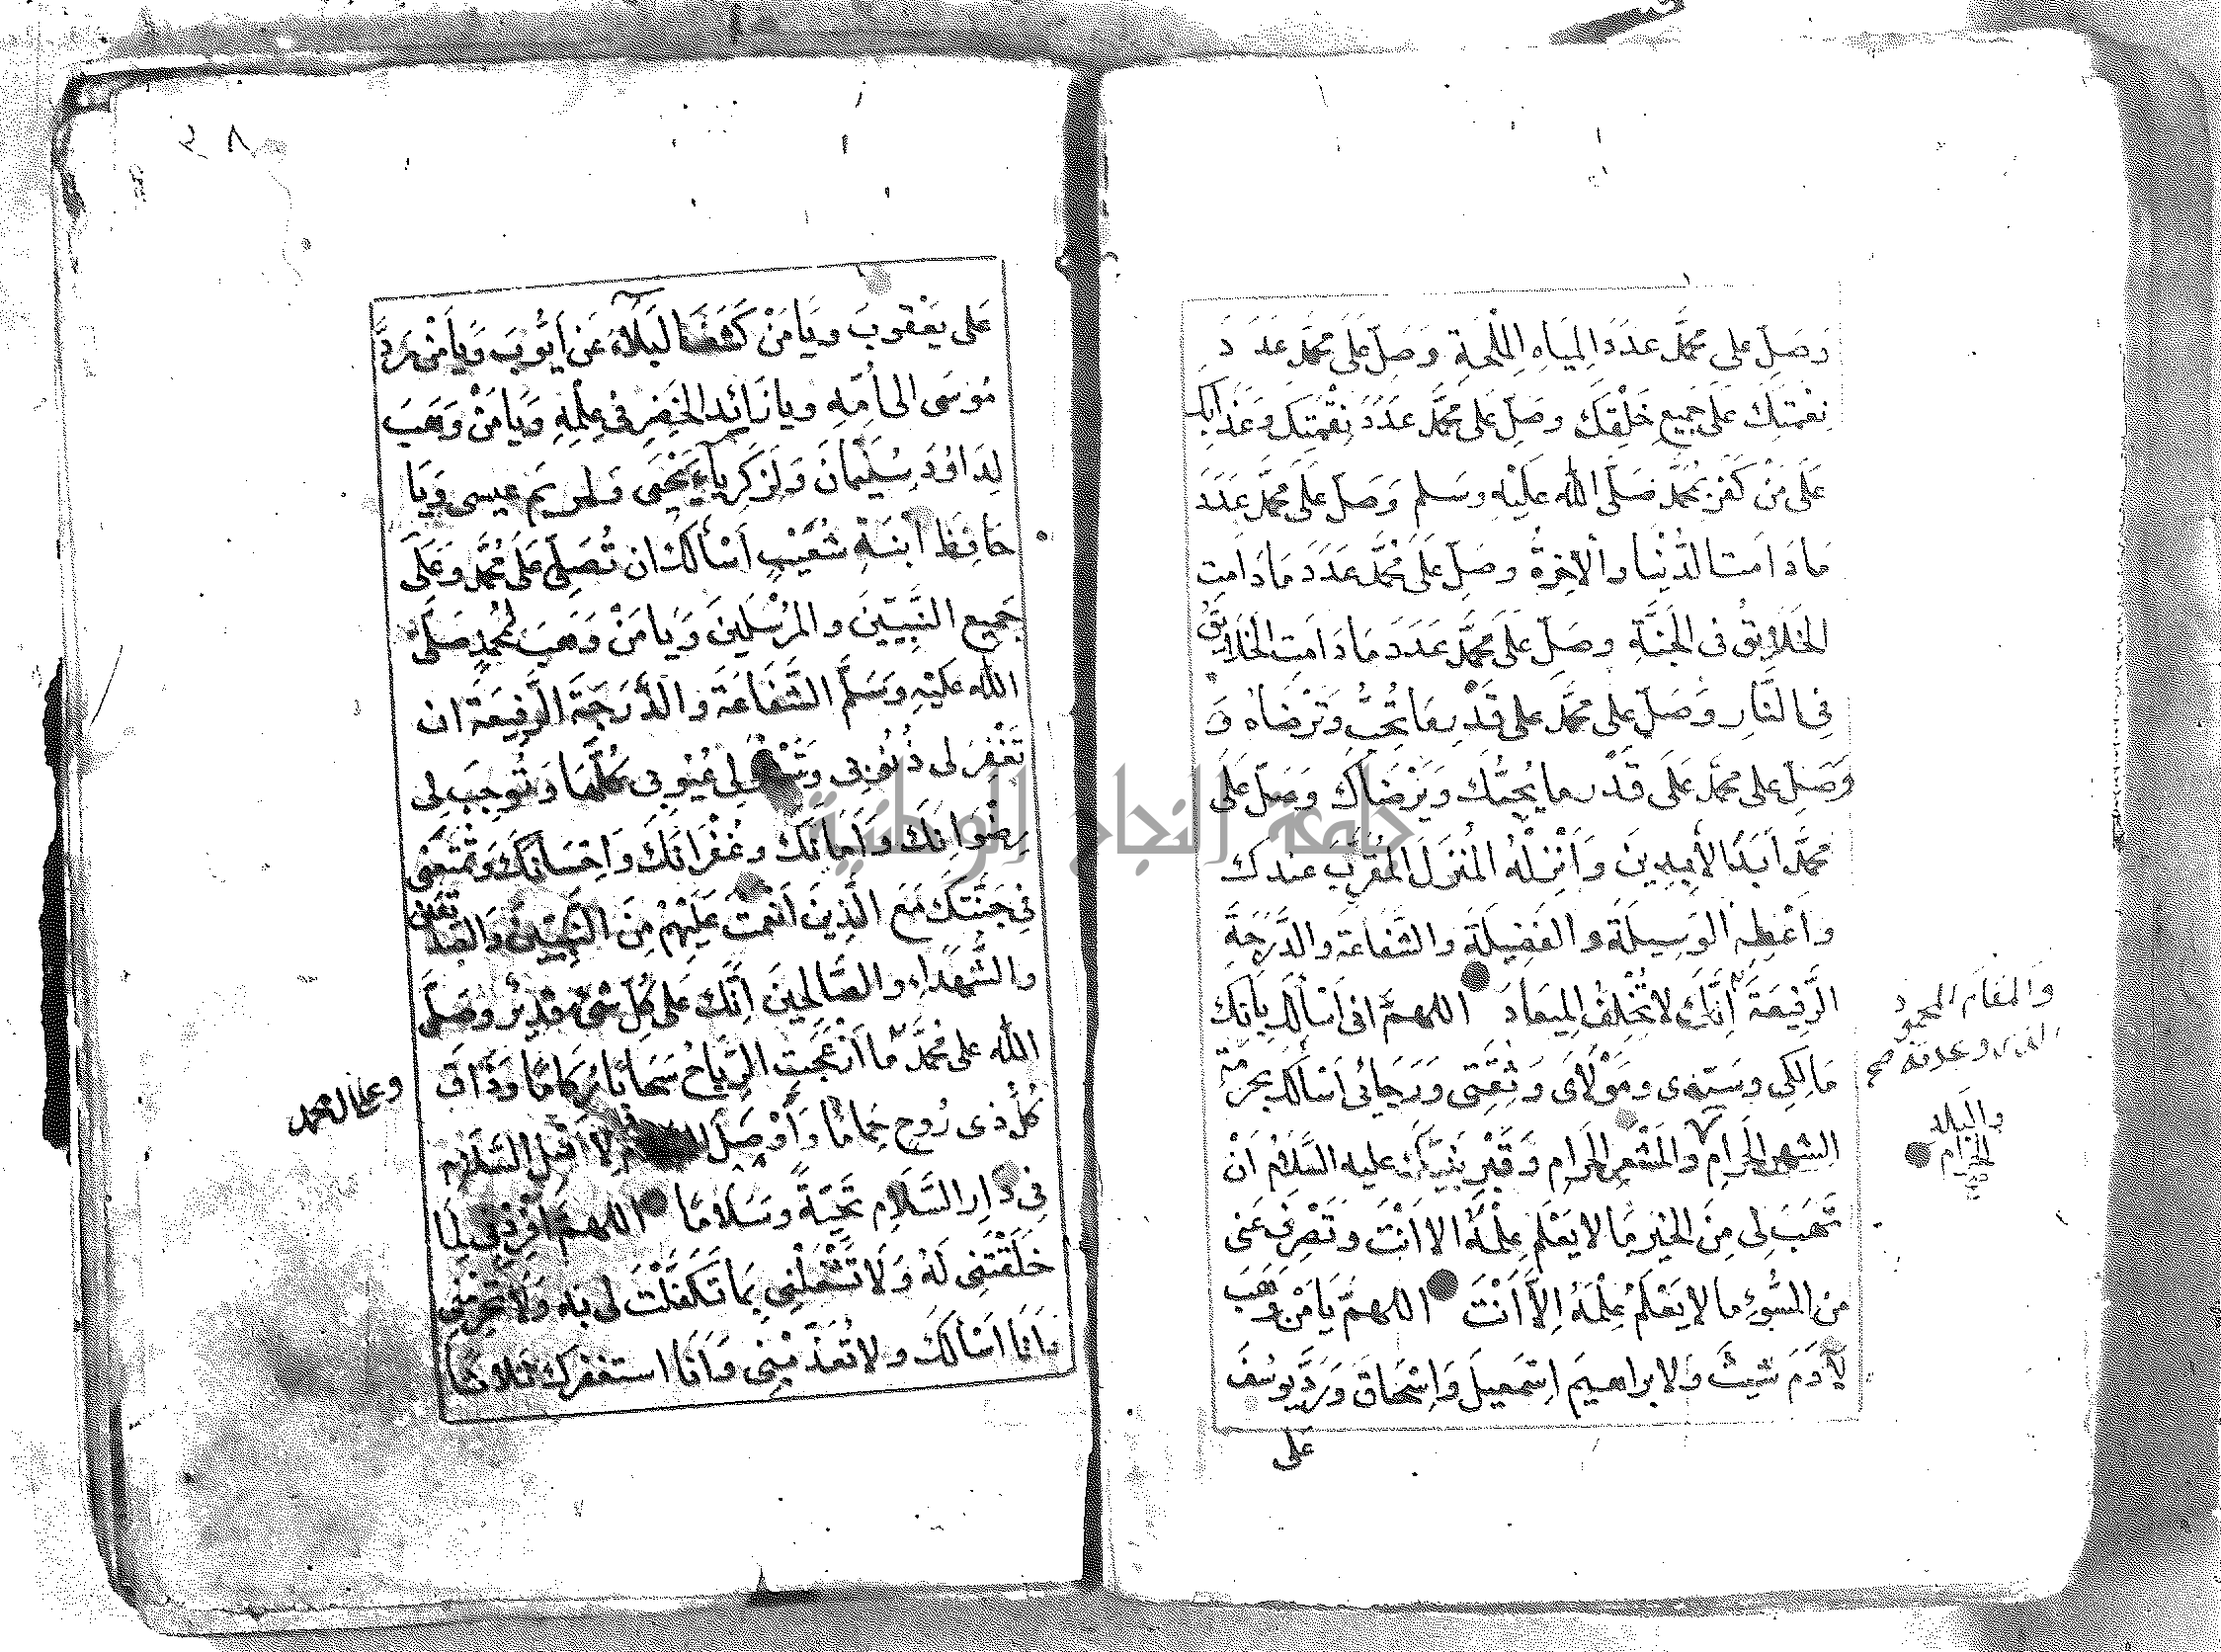 وَصَلِّ عَلى مُحَمَّدٍ عَدَدَ المِيَاهِ المِلْحَةِ وَصَلِّ عَلَى مُحَمَّدٍ عَدَدَ
نِعْمَتِكَ عَلَى جَمِيعِ خَلْقِكَ وَصَلِّ عَلَى مُحَمَّدٍ عَدَدَ نِقْمَتِكَ وَعَذَابِكَ
عَلَى مَنْ كَفَرَ بِمُحَمَّدٍ صَلَّى الله عَلَيْهِ وسَلم وَصَلِّ عَلَى مُحَمَّدٍ عَدَدَ
مَا دَامَت الدُّنْيَا والْاخِرَةُ وصَلِّ عَلَى مُحَمَّدٍ عَدَدَ مَا دَامَتِ
الخَلَايِقُ فى الجَنَّةِ وصَلِّ عَلَى مُحَمَّدٍ عَدَدَ مَا دَامَتِ الخَلَايِقُ
فِى النَّارِ وَصَلِّ عَلى مُحَمَّدٍ عَلى قَدْرِ مَا تُحِبُّ وَتَرْضَاهُ وَ
وَصَلِّ عَلى مُحَمَّدٍ عَلَى قَدْرِ ما يُحِبُّكَ وَيَرْضَاكَ وَصَلِّ عَلَى
مُحَمَّدٍ اَبَدَ الأَبِدِينَ وَاَنْزِلْهُ المُنْزَلَ المُقَرَّبَ عندكَ
وَاَعْطِهِ الوَسِيلَةَ والفَضِيلَةَ والشَّفَاعَةَ والدَّرَجَةَ
الرَّفِيعَةَ اِنَّكَ لا تُخْلِفُ المِيعَادَ اللهمَّ انى اَسْألكَ بِأنكَ
والمقَام المحمود
الذى وعدته صح
مَالِكِى وسَيِّدِى ومَوْلَاىَ وَثِقَتِى وَرَجَائِى اَسْألكَ بِحُرْمَة
الشهرِ الحَرامِ والمَشْعَرِ الحَرامِ وَقَبْرِ نَبِيِّكَ عليه السَّلَامُ اَنْ
والبلد
الحرام
صح
تَهَبَ لِى مِنَ الخَيرِ مَا لا يَعْلَمُ عِلْمَهُ الا اَنْتَ وتَصْرِفَ عَنى
مِنَ السُّوءِ ما لا يَعْلَمُ عِلْمَهُ اِلاَّ اَنْتَ اللهمَّ يَا مَنْ وَهَبَ
لآدَمَ شِيثَ وَلابراهِيمَ اِسْمعيلَ وَاِسْحَاقَ وَرَدَّ يوسُفَ
عَلى
عَلى يَعْقوبَ وَيَا مَنْ كَشَفَ البَلَاءَ عَن اَيُّوبَ وَيَا مَنْ رَدَّ
مُوسَى الى اُمِّهِ ويا زَائِدَ الخَضِرِ فى عِلْمِهِ وَيَا مَنْ وَهَبَ
لِدَاوُدَ سُلَيْمَانَ وَلِزَكَرِيآءَ يَحْيَى وَلمريمَ عيسى وَيَا
حَافِظَ اَبْنَةِ شُعَيْبٍ اَسْألكَ ان تُصَلِّىَ عَلَى مُحَمَّدٍ وَعَلَى
جَمِيعِ النَّبِيّينَ والمُرْسَلِينَ وَيَا مَنْ وَهَبَ لمُحَمَّدٍ صَلَّى
الله عَلَيْهِ وَسَلَّمَ الشَّفَاعَةَ والدَّرَجَةَ الرَّفِيعَةَ ان
تَغْفِرَ لى ذُنُوبِى وَتَسْتُرَ لِى عُيُوبِى كُلَّهَا وَتُوجِبَ لِى
رِضْوَانَكَ وَاَمَانَكَ وغُفْرَانَكَ وَاِحْسَانَكَ وَتُمَتِّعَنى
فِى جَنَّتِكَ مَعَ الَّذِينَ اَنْعَمْتَ عَلَيْهِمْ مِنَ النَّبِيّينَ وَالصدّيقين
والشُّهَدَاءِ والصَّالِحِينَ اِنَّكَ عَلى كُلِّ شَىْءٍ قَدِيرٌ وَصَلَّى
الله عَلى مُحَمَّدٍ مَا اَزْعَجَتِ الرِّيَاحُ سَحابًا رُكَامًا وَذَاقَ
وعلى ال محمد
كُلُّ ذى رُوحٍ حِمَامًا وَأَوْصِلِ السَّلامَ لاَهْلِ السَّلَامِ
فِى دَارِ السَّلَامِ تَحِيّةً وَسَلَامًا اللهمَّ اَفْرِدْنِى لِمَا
خَلَقْتَنِى لَهُ وَلَا تَشْغَلْنِى بِمَا تَكَفَّلْتَ لى بِهِ وَلَا تَحْرِمْنِى
وَاَنَا اَسْألكَ ولا تُعَذِّبْنِى وَاَنَا استغفرك ثلاثًا